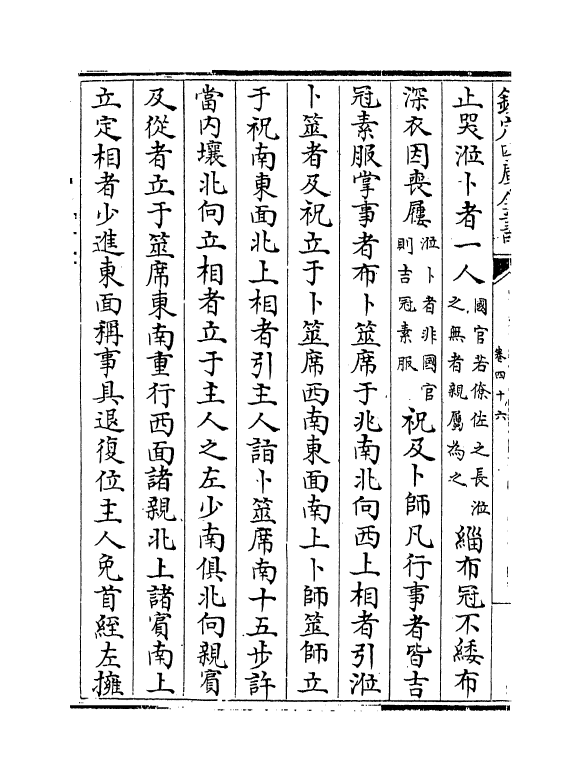 止哭涖卜者一人國官若條佐之長涖之無者親屬為之緇布冠不緌布
深衣因喪屨涖卜者非國官則吉冠素服祝及卜師凡行事者皆吉
冠素服掌事者布卜筮席于兆南北向西上相者引涖
卜筮者及祝立于卜筮席西南東面南上卜師筮師立
于祝南東面北上相者引主人詣卜筮席南十五步許
當內壤北向立相者立于主人之左少南俱北向親賓
及從者立于筮席東南重行西面諸親北上諸賓南上
立定相者少進東面稱事具退復位主人免首絰左擁
卷四十六